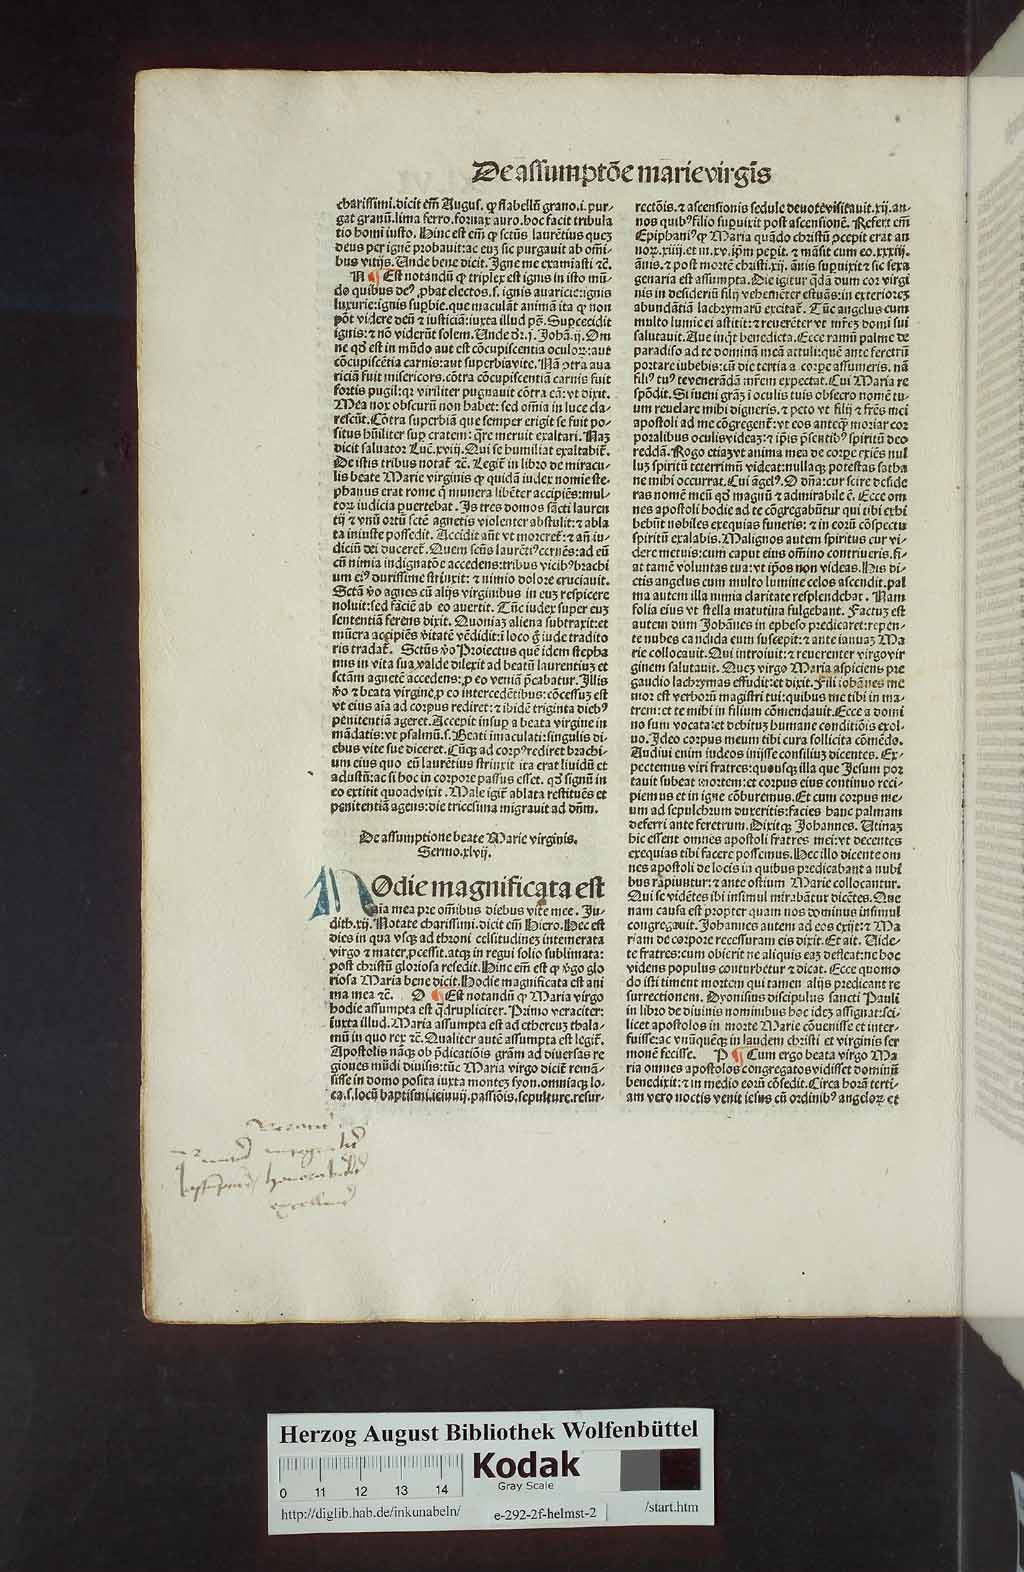 De assumptōe marie virgīs
charissimi. dicit em̄ Augus. ꝙ flabellū grano .i. pur-
gat granū. lima ferro. fornax auro. hoc facit tribula
tio homi iusto. Hinc est em̄ ꝙ sctūs laurētius quez
deus per ignē probauit: ac euz sic purgauit ab om̄i-
bus vitijs. Unde bene dicit. Igne me examiasti ⁊ē.
N ¶ Est notandū ꝙ triplex est ignis in isto mū-
do quibus deꝰ ꝓbat electos. s. ignis auaricie: ignis
luxurie: ignis supbie. que maculāt animā ita ꝙ non
pōt videre deū ⁊ iusticiā: iuxta illud ps̄. Supcecidit
ignis: ⁊ nō viderūt solem. Unde dr̄. j. Johā. ij. Om
ne qd̓ est in mūdo aut est cōcupiscentia oculoꝝ: aut
cōcupiscētia carnis: aut superbia vite. Nā ꝯtra aua
riciā fuit misericors. cōtra cōcupiscentiā carnis fuit
fortis pugil: qꝛ viriliter pugnauit cōtra eā: vt dixit.
Mea nox obscurū non habet: sed om̄ia in luce cla-
rescūt. Cōtra superbiā que semper erigit se fuit po-
situs hūiliter sup cratem: q̄re meruit exaltari. Naz
dicit saluator Luē. xviij. Qui se humiliat exaltabit̄.
De istis tribus notat̄ ⁊ē. Legit̄ in libro de miracu-
lis beate Marie virginis ꝙ quidā iudex nomie ste-
phanus erat rome q̄ munera libēter accipiēs: mul-
toꝝ iudicia ꝑuertebat. Is tres domos sācti lauren
tij ⁊ vnū ortū sctē agnetis violenter abstulit: ⁊ abla
ta iniuste possedit. Accidit aūt vt moreret̄: ⁊ an̄ iu-
diciū dei duceret̄. Quem scūs laurētiꝰ cernēs: ad eū
cū nimia indignatōe accedens: tribus vicibꝰ brachi
um eiꝰ durissime strinxit: ⁊ nimio dolore cruciauit.
Sctā v̓o agnes cū alijs virginibus in euz respicere
noluit: sed faciē ab eo auertit. Tūc iudex super euz
sententiā ferens dixit. Quoniaz aliena subtraxit: et
mūera accipiēs v̓itatē vēdidit: i loco q̄ iude tradito
ris tradat̄. Sctūs v̓o Proiectus quē idem stepha
nus in vita sua valde dilexit ad beatū laurentiuz et
sctām agnetē accedens: ꝓ eo veniā p̄cabatur. Illis
v̓o ⁊ beata virgine ꝓ eo intercedētibus: cōcessuz est
vt eius aīa ad corpus rediret: ⁊ ibidē triginta diebꝰ
penitentiā ageret. Accepit insup a beata virgine in
mādatis: vt psalmū. s. Beati imaculati: singulis di-
ebus vite sue diceret. Cūqꝫ ad corpꝰ rediret brachi-
um eius quo eū laurētius strinxit ita erat liuidū et
adustū: ac si hoc in corpore passus esset. qd̓ signū in
eo extitit quoadvixit. Male igit̄ ablata restituēs et
penitentiā agens: die tricesima migrauit ad dn̄m.
De assumptione beate Marie virginis.
Sermo. xlvij.
HOdie magnificata est
aīa mea pre om̄ibus diebus vite mee. Ju-
dith. xij. Notate charissimi. dicit em̄ Hiero. Hec est
dies in qua vsqꝫ ad throni celsitudinez intemerata
virgo ⁊ mater ꝓcessit. atqꝫ in regni solio sublimata:
post christū gloriosa resedit. Hinc em̄ est ꝙ v̓go glo
riosa Maria bene dicit. Hodie magnificata est ani
ma mea ⁊ē. O ¶ Est notandū ꝙ Maria virgo
hodie assumpta est q̄drupliciter. Primo veraciter:
iuxta illud. Maria assumpta est ad ethereuz thala-
mū in quo rex ⁊ē. Qualiter autē assumpta est legit̄.
Apostolis nāqꝫ ob p̄dicatiōis grām ad diuersas re
giones mūdi diuisis: tūc Maria virgo dicit̄ remā-
sisse in domo posita iuxta montez syon. omniaqꝫ lo-
ca. s. locū baptismi. ieiunij. passiōis. sepulture. resur-
rectōis. ⁊ ascensionis sedule deuote visitauit. xij. an-
nos quibꝰ filio supuixit post ascensionē. Refert em̄
Epiphaniꝰ ꝙ Maria quādo christū ꝯcepit erat an
noꝝ. xiiij. et in. xv. ip̄m pepit. ⁊ māsit cum eo. xxxiij.
ānis. ⁊ post mortē christi. xij. ānis supuixit ⁊ sic sexa
genaria est assumpta. Die igitur q̄dā dum cor virgi
nis in desideriū filij vehemēter estuās: in exteriorez
abundātiā lachrymarū excitat̄. Tūc angelus cum
multo lumie ei astitit: ⁊ reuerēter vt mr̄ez domi sui
salutauit. Aue inqt benedicta. Ecce ramū palme de
paradiso ad te dominā meā attuli: quē ante feretrū
portare iubebis: cū die tertia a corpe assumeris. nā
filiꝰ tuꝰ te venerādā mr̄em expectat. Cui Maria re
spōdit. Si iueni grāz i oculis tuis obsecro nomē tu-
um reuelare mihi digneris. ⁊ peto vt filij ⁊ fr̄es mei
apostoli ad me cōgregent̄: vt eos anteqꝫ moriar cor
poralibus oculis videaz: ⁊ ip̄is p̄sentibꝰ spiritū deo
reddā. Rogo etiaz vt anima mea de corpe exiēs nul
luz spiritū teterrimū videat: nullaqꝫ potestas satha
ne mihi occurrat. Cui āgelꝰ. O dn̄a: cur scire deside
ras nomē meū qd̓ magnū ⁊ admirabile ē. Ecce om
nes apostoli hodie ad te cōgregabūtur qui tibi exhi
bebūt nobiles exequias funeris: ⁊ in eorū cōspectu
spiritū exalabis. Malignos autem spiritus cur vi-
dere metuis: cum caput eius om̄ino contriueris. fi-
at tamē voluntas tua: vt ip̄os non videas. His di-
ctis angelus cum multo lumine celos ascendit. pal
ma autem illa nimia claritate resplendebat. Nam
folia eius vt stella matutina fulgebant. Factuz est
autem dum Johānes in epheso predicaret: repen-
te nubes candida eum suscepit: ⁊ ante ianuaz Ma
rie collocauit. Qui introiuit: ⁊ reuerenter virgo vir
ginem salutauit. Quez virgo Maria aspiciens pre
gaudio lachrymas effudit: et dixit. Fili iohānes me
mor est verborū magistri tui: quibus me tibi in ma-
trem: et te mihi in filium cōmendauit. Ecce a domi
no sum vocata: et debituz humane conditiōis exol-
uo. Ideo corpus meum tibi cura sollicita cōmēdo.
Audiui enim iudeos inijsse consiliuz dicentes. Ex-
pectemus viri fratres: quousqꝫ illa que Jesum por
tauit subeat mortem: et corpus eius continuo reci-
piemus et in igne cōburemus. Et cum corpus me-
um ad sepulchrum duxeritis: facies hanc palmam
deferri ante feretrum. Dixitqꝫ Johannes. Utinaz
hic essent omnes apostoli fratres mei: vt decentes
exequias tibi facere possemus. Hec illo dicente om
nes apostoli de locis in quibus predicabant a nubi
bus rapiuntur: ⁊ ante ostium Marie collocantur.
Qui se vidētes ibi insimul mirabātur dicētes. Que
nam causa est propter quam nos dominus insimul
congregauit. Johannes autem ad eos exijt: ⁊ Ma
riam de corpore recessuram eis dixit. Et ait. Uide-
te fratres: cum obierit ne aliquis eaz defleat: ne hoc
videns populus conturbetur ⁊ dicat. Ecce quomo
do isti timent mortem qui tamen alijs predicant re
surrectionem. Dyonisius discipulus sancti Pauli
in libro de diuinis nominibus hoc idez assignat: sci-
licet apostolos in morte Marie cōuenisse et inter-
fuisse: ac vnūquēqꝫ in laudem christi et virginis ser
monē fecisse. P ¶ Cum ergo beata virgo Ma
ria omnes apostolos congregatos vidisset dominū
benedixit: ⁊ in medio eorū cōsedit. Circa horā terti-
am vero noctis venit iesus cū ordinibꝰ angeloꝝ et
Herzog August Bibliothek Wolfenbüttel
Kodak
Gray Scale
0 11 12 13 14
http://diglib.hab.de/inkunabeln/ e-292-2f-helmst-2 /start.htm